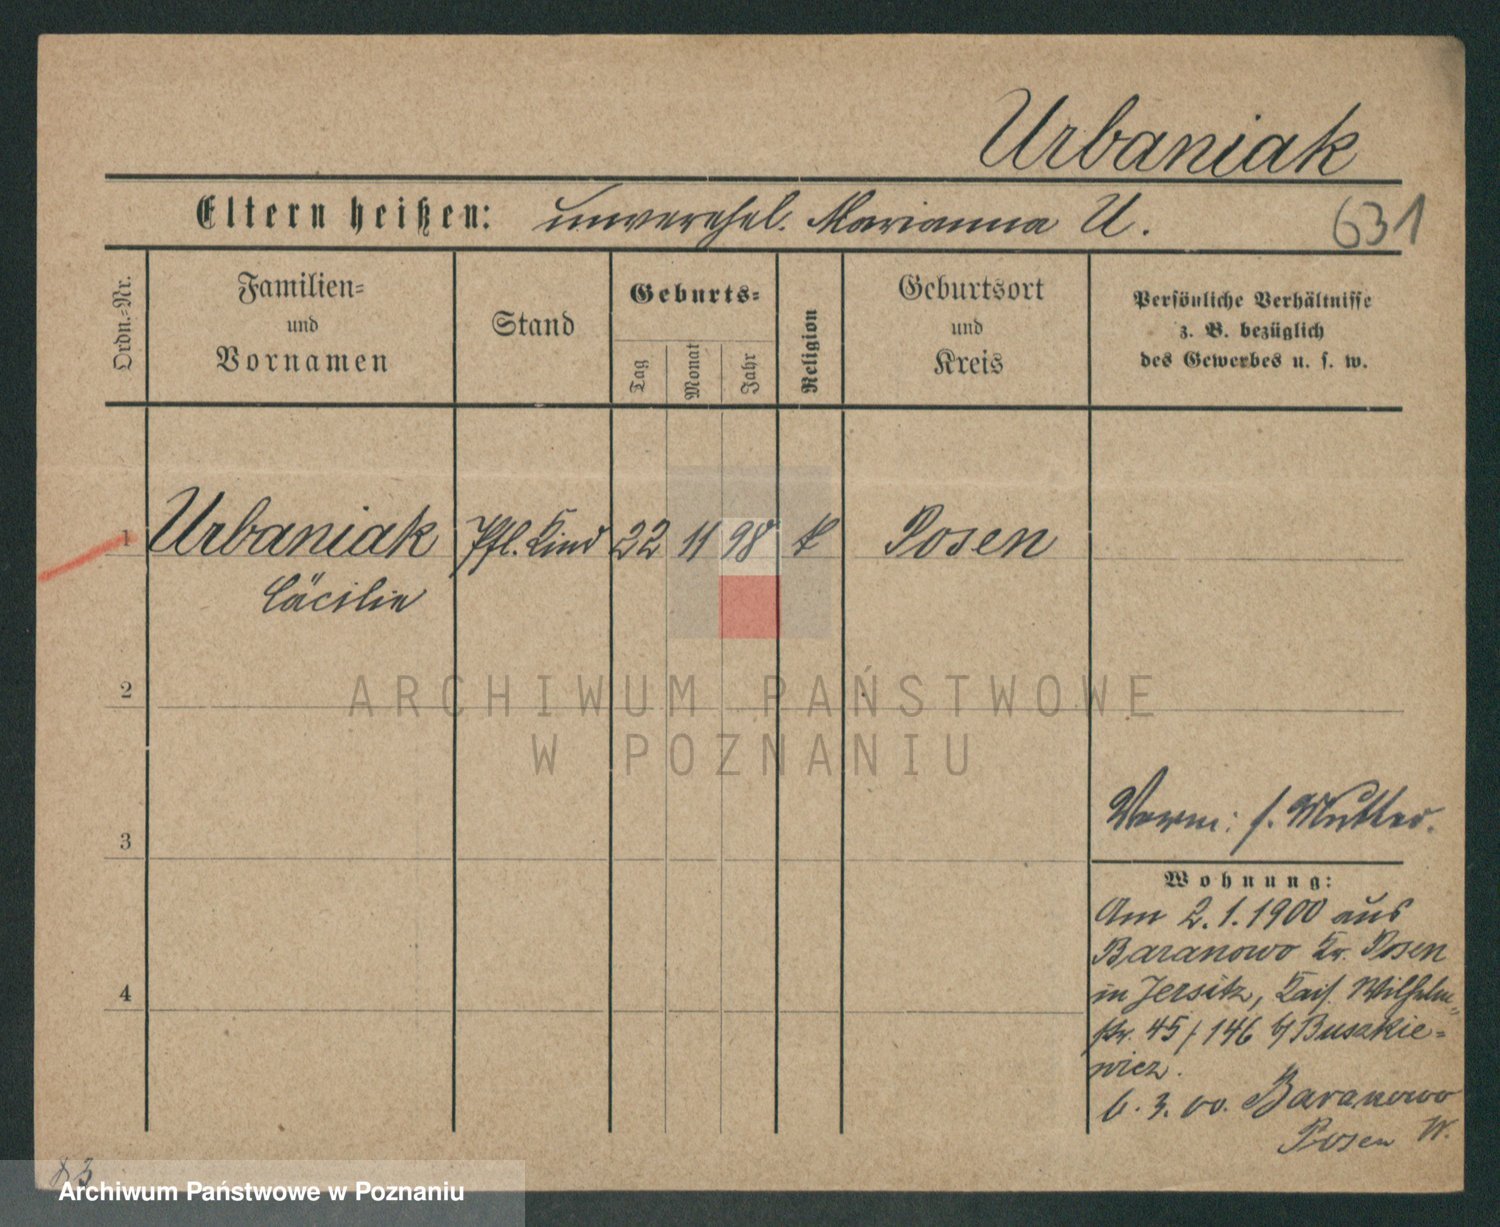 Urbaniak
Eltern heißen: unverehel. Marianna U.
631
Ordn.-Nr.
Familien-
und
Vornamen
Stand
Geburts-
Tag
Monat
Jahr
Religion
Geburtsort
und
Kreis
Persönliche Verhältnisse
z. B. bezüglich
des Gewerbes u. s. w.
1 Urbaniak Pfl. Kind 22 11 98 k Posen
Cäcilie
2
ARCHIWUM PAŃSTWOWE
W POZNANIU
3
Verm: s. Mutter.
Wohnung:
Am 2. 1. 1900 aus
Baranowo Kr. Posen
in Jersitz, Kais. Wilhelm-
str. 45/146 b/ Buszkie-
wicz.
4
6. 3. 00. Baranowo
Posen W.
83
Archiwum Państwowe w Poznaniu